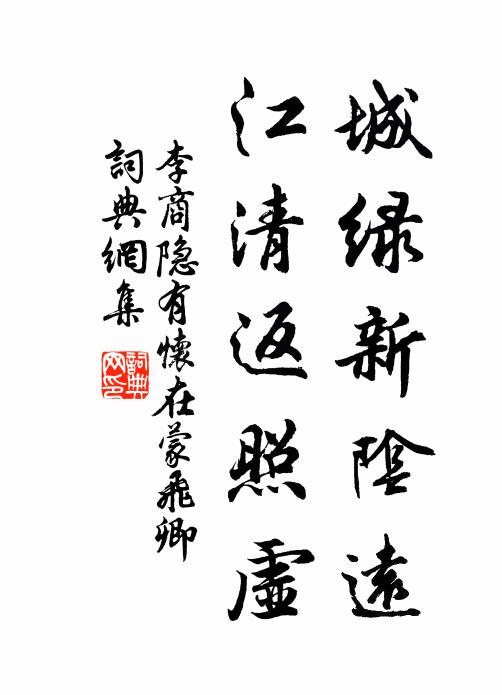 城绿新陰遠
江清返照虛
李商隐有懷在蒙飛卿
詞典網集
詞典网印